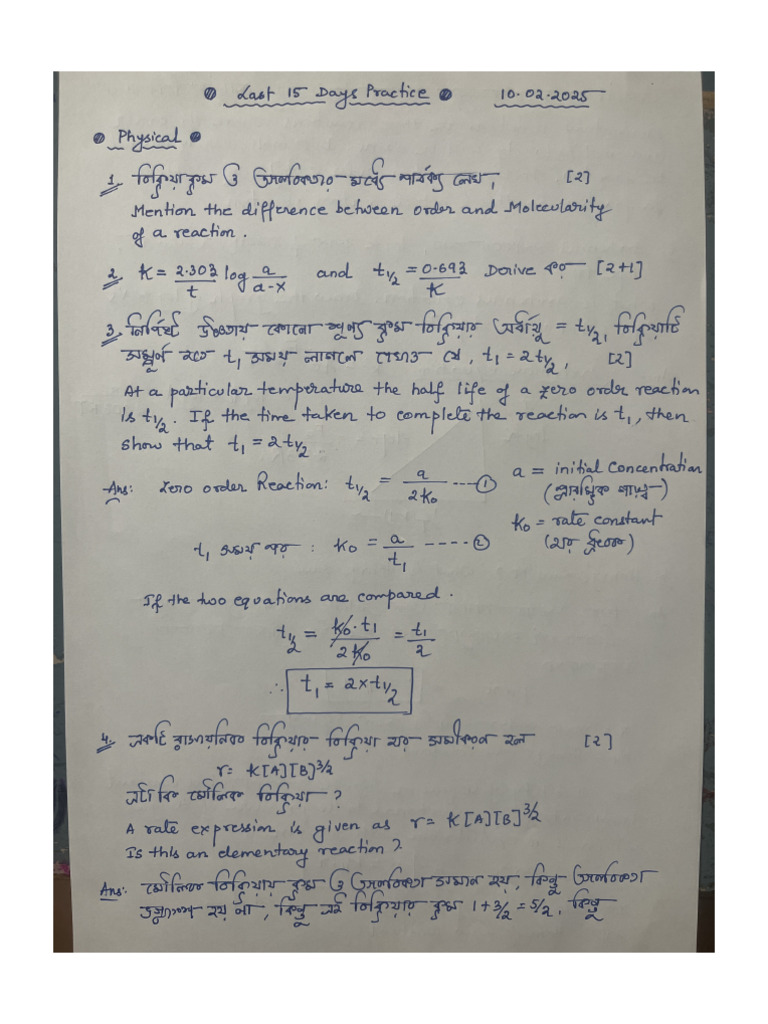 Last 15 Days Practice 10.02.2025
Physical
1. বিক্রিয়া ক্রম ও আণবিকতার মধ্যে পার্থক্য লেখ। [২]
Mention the difference between order and Molecularity
of a reaction.
2. K = 2.303/t log a/a-x and t1/2 = 0.693/K Derive কর [2+1]
3. নির্দিষ্ট উষ্ণতায় কোনো শূন্য ক্রম বিক্রিয়ার অর্ধায়ু = t1/2, বিক্রিয়াটি
সম্পূর্ণ হতে t1 সময় লাগলে দেখাও যে, t1 = 2t1/2, [২]
At a particular temperature the half life of a zero order reaction
is t1/2. If the time taken to complete the reaction is t1, then
show that t1 = 2t1/2
Ans: Zero order Reaction: t1/2 = a/2K0 ---- ① a = initial concentration
(প্রারম্ভিক গাঢ়ত্ব)
K0 = rate constant
(হার ধ্রুবক)
t1 সময় পর : K0 = a/t1 ---- ②
If the two equations are compared.
t1/2 = K0·t1/2K0 = t1/2
∴ t1 = 2×t1/2
4. একটি রাসায়নিক বিক্রিয়ার বিক্রিয়া হার সমীকরণ হল [২]
r = K[A][B]^3/2
এটা কি মৌলিক বিক্রিয়া ?
A rate expression is given as r = K[A][B]^3/2
Is this an elementary reaction ?
Ans: মৌলিক বিক্রিয়ায় ক্রম ও আণবিকতা সমান হয়, কিন্তু আণবিকতা
ভগ্নাংশ হয় না, কিন্তু এই বিক্রিয়ার ক্রম 1+3/2 = 5/2, কিন্তু